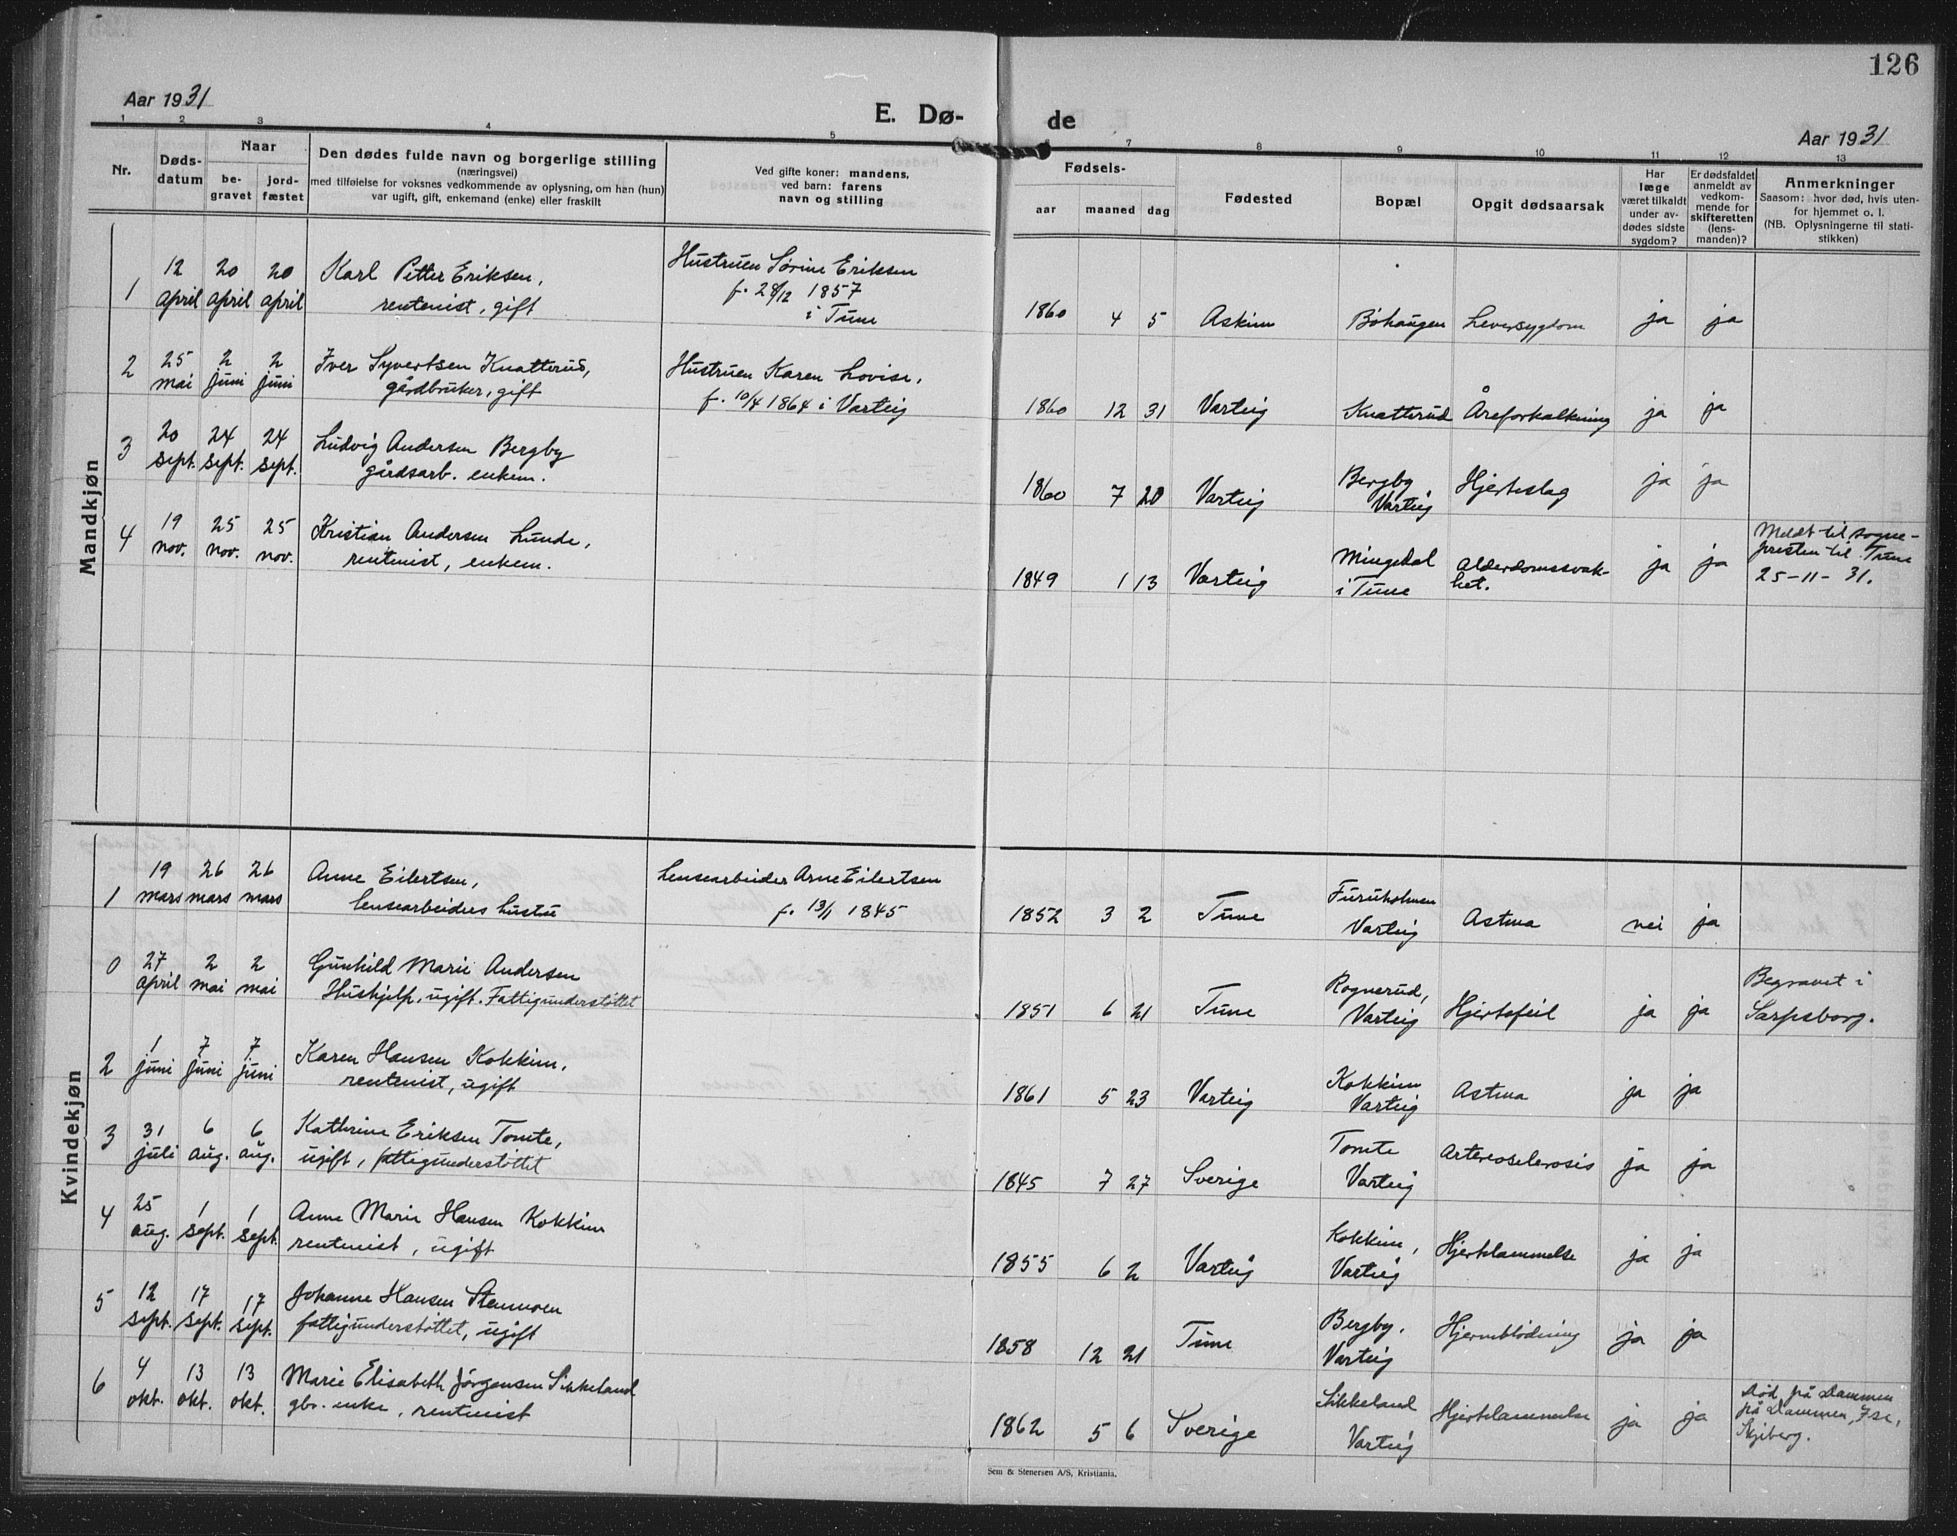 126
Aar 1931
E. Dø-
de
Aar 1931
1 2 3 4 5 7 8 9 10 11 12 13
Nr.
Døds-
datum
Naar
be-
gravet
jord-
fæstet
Den dødes fulde navn og borgerlige stilling
(næringsvei)
med tilføielse for voksnes vedkommende av oplysning, om han (hun)
var ugift, gift, enkemand (enke) eller fraskilt
Ved gifte koner: mandens,
ved barn: farens
navn og stilling
Fødsels-
aar maaned dag
Fødested
Bopæl
Opgit dødsaarsak
Har
læge
været tilkaldt
under av-
dødes sidste
sygdom?
Er dødsfaldet
anmeldt av
vedkom-
mende for
skifteretten
(lens-
manden)?
Anmerkninger
Saasom: hvor død, hvis uten-
for hjemmet o. l.
(NB. Oplysningerne til stati-
stikken)
Mandkjøn
1 12 april 20 april 20 april
Karl Petter Eriksen,
rentenist, gift
Hustruen Sørine Eriksen
f. 28/12 1857
i Tune
1860 4 5 Askim Bøhaugen Leversygdom ja ja
2 25 mai 2 juni 2 juni
Iver Syvertsen Knatterud,
gårdbruker, gift
Hustruen Karen Lovise,
f. 10/4 1864 i Varteig
1860 12 31 Varteig Knatterud Åreforkalkning ja ja
3 20 sept. 24 sept. 24 sept.
Ludvig Andersen Bergby
gårdsarb. enkem.
1860 7 20 Varteig Bergby Varteig Hjerteslag ja ja
4 19 nov. 25 nov. 25 nov.
Kristian Andersen Lunde,
rentenist, enkem.
1849 1 13 Varteig Mingedal i Tune Alderdomssvak-
het. ja ja
Meldt til sogne-
presten til Tune
25-11-31.
Kvindekjøn
1 19 mars 26 mars 26 mars
Anne Eilertsen,
lensearbeiders hustru
Lensearbeider Arne Eilertsen
f. 13/1 1845
1852 3 2 Tune Furuholmen Varteig Astma nei ja
0 27 april 2 mai 2 mai
Gunhild Marie Andersen
Hushjelp, ugift. Fattigunderstøttet
1851 6 21 Tune Rognerud, Varteig Hjertefeil ja ja
Begravet i
Sarpsborg.
2 1 juni 7 juni 7 juni
Karen Hansen Kokkim,
rentenist, ugift
1861 5 23 Varteig Kokkim Varteig Astma ja ja
3 31 juli 6 aug. 6 aug.
Kathrine Eriksen Tomte,
ugift, fattigunderstøttet
1845 7 27 Sverige Tomte Varteig Arteriosclerosis ja ja
4 25 aug. 1 sept. 1 sept.
Anne Marie Hansen Kokkim
rentenist, ugift
1855 6 2 Varteig Kokkim, Varteig Hjertelammelse ja ja
5 12 sept. 17 sept. 17 sept.
Johanne Hansen Stenmoen
fattigunderstøttet, ugift
1858 12 21 Tune Bergby, Varteig Hjerneblødning ja ja
6 4 okt. 13 okt. 13 okt.
Marie Elisabeth Jørgensen Sikkeland
gbr. enke, rentenist
1862 5 6 Sverige Sikkeland Varteig Hjertelammelse ja ja
Død på Dammen
på Dammen, Ise,
Skjeberg.
Sem & Stenersen A/S, Kristiania.